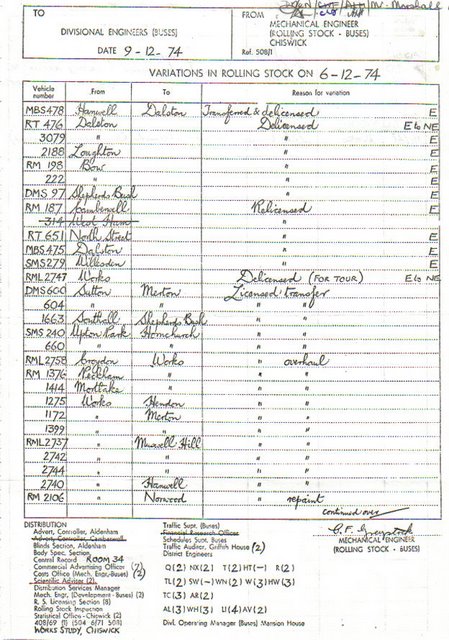 TO
FROM
DIVISIONAL ENGINEERS (BUSES)
MECHANICAL ENGINEER
(ROLLING STOCK - BUSES)
CHISWICK
DATE 9-12-74
Ref. 508/1
VARIATIONS IN ROLLING STOCK ON 6-12-74
Vehicle number From To Reason for variation
MBS478 Hanwell Dalston Transferred & delicensed E
RT 476 Dalston Delicensed E to NE
3079 " " E
2188 Loughton " E
RM 198 Bow " E
222 " " E
DMS 97 Shepherds Bush " E
RM 187 Camberwell Relicensed E
314 West Ham "
RT 651 North Street " E
MBS475 Dalston " E
SMS279 Willesden " E
RML2747 Works Delicensed (FOR TOUR) E to NE
DMS600 Sutton Merton Licensed transfer
604 " " " "
1663 Southall Shepherds Bush " "
SMS 240 Upton Park Hornchurch " "
660 " " " "
RML2758 Croydon Works " overhaul
RM 1376 Peckham " " "
1414 Mortlake " " "
1275 Works Hendon " "
1172 " Merton " "
1399 " " " "
RML2737 " Muswell Hill " "
2742 " " " "
2744 " " " "
2740 " Hanwell " "
RM 2106 " Norwood " repaint
continued over
DISTRIBUTION
Advert. Controller, Aldenham
Advert. Controller, Camberwell
Blinds Section, Aldenham
Body Spec. Section
Central Record ROOM 34
Commercial Advertising Officer (7)
Costs Office (Mech. Engr-Buses) (2)
Scientific Adviser (2)
Distribution Services Manager
Mech. Engr. (Development-Buses) (2)
R. S. Licensing Section (8)
Rolling Stock Inspectors
Statistical Office - Chiswick (2)
408/69 (1) (504 6/71 508)
WORKS STUDY, CHISWICK
Traffic Supt. (Buses)
Financial Research Officer
Schedules Supt. Buses
Traffic Auditor, Griffith House (2)
District Engineers
Q(2) NX(2) T(2) HT(-) R(2)
TL(2) SW(-) WN(2) W(3) HW(3)
TC(3) AR(2)
AL(3) WH(3) LI(4) AV(2)
Divl. Operating Manager (Buses) Mansion House
MECHANICAL ENGINEER
(ROLLING STOCK - BUSES)